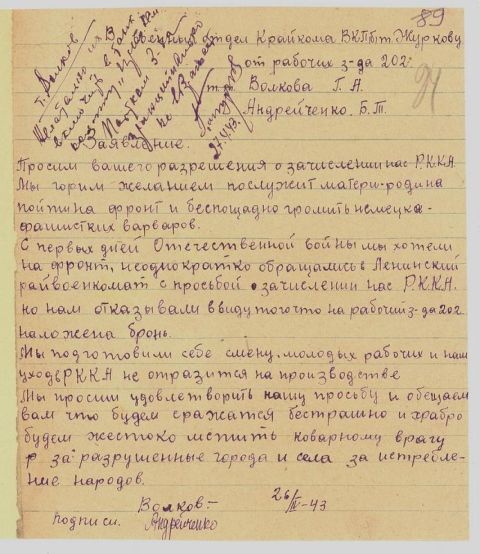 89
отдел Крайкома ВКПбт. Журкову
от рабочих з-да 202
т.т. Волкова Г. А.
Андрейченко. Б. Т.
т. Волков
27.4.43.
Заявление.
Просим вашего разрешения о зачислении нас Р.К.К.А.
Мы горим желанием послужит матери-родина
пойти на фронт и беспощадно громить немецка-
фашистких варваров.
С первых дней Отечественной войны мы хотели
на фронт, неоднократно обращались в Ленинский
райвоенкомат с просьбой о зачислении нас Р.К.К.А.
но нам отказывали ввиду того что на рабочий з-да 202
наложена бронь.
Мы подготовили себе смену. молодых рабочих и наш
уход в Р.К.К.А не отразится на производстве
Мы просим удовлетворить нашу просьбу и обещаем
вам что будем сражатся бестрашно и храбро
будем жестоко мстить коварному врагу
за разрушенные города и села за истребле-
ние народов.
Волков-
26/IV-43
подписи. Андрейченко